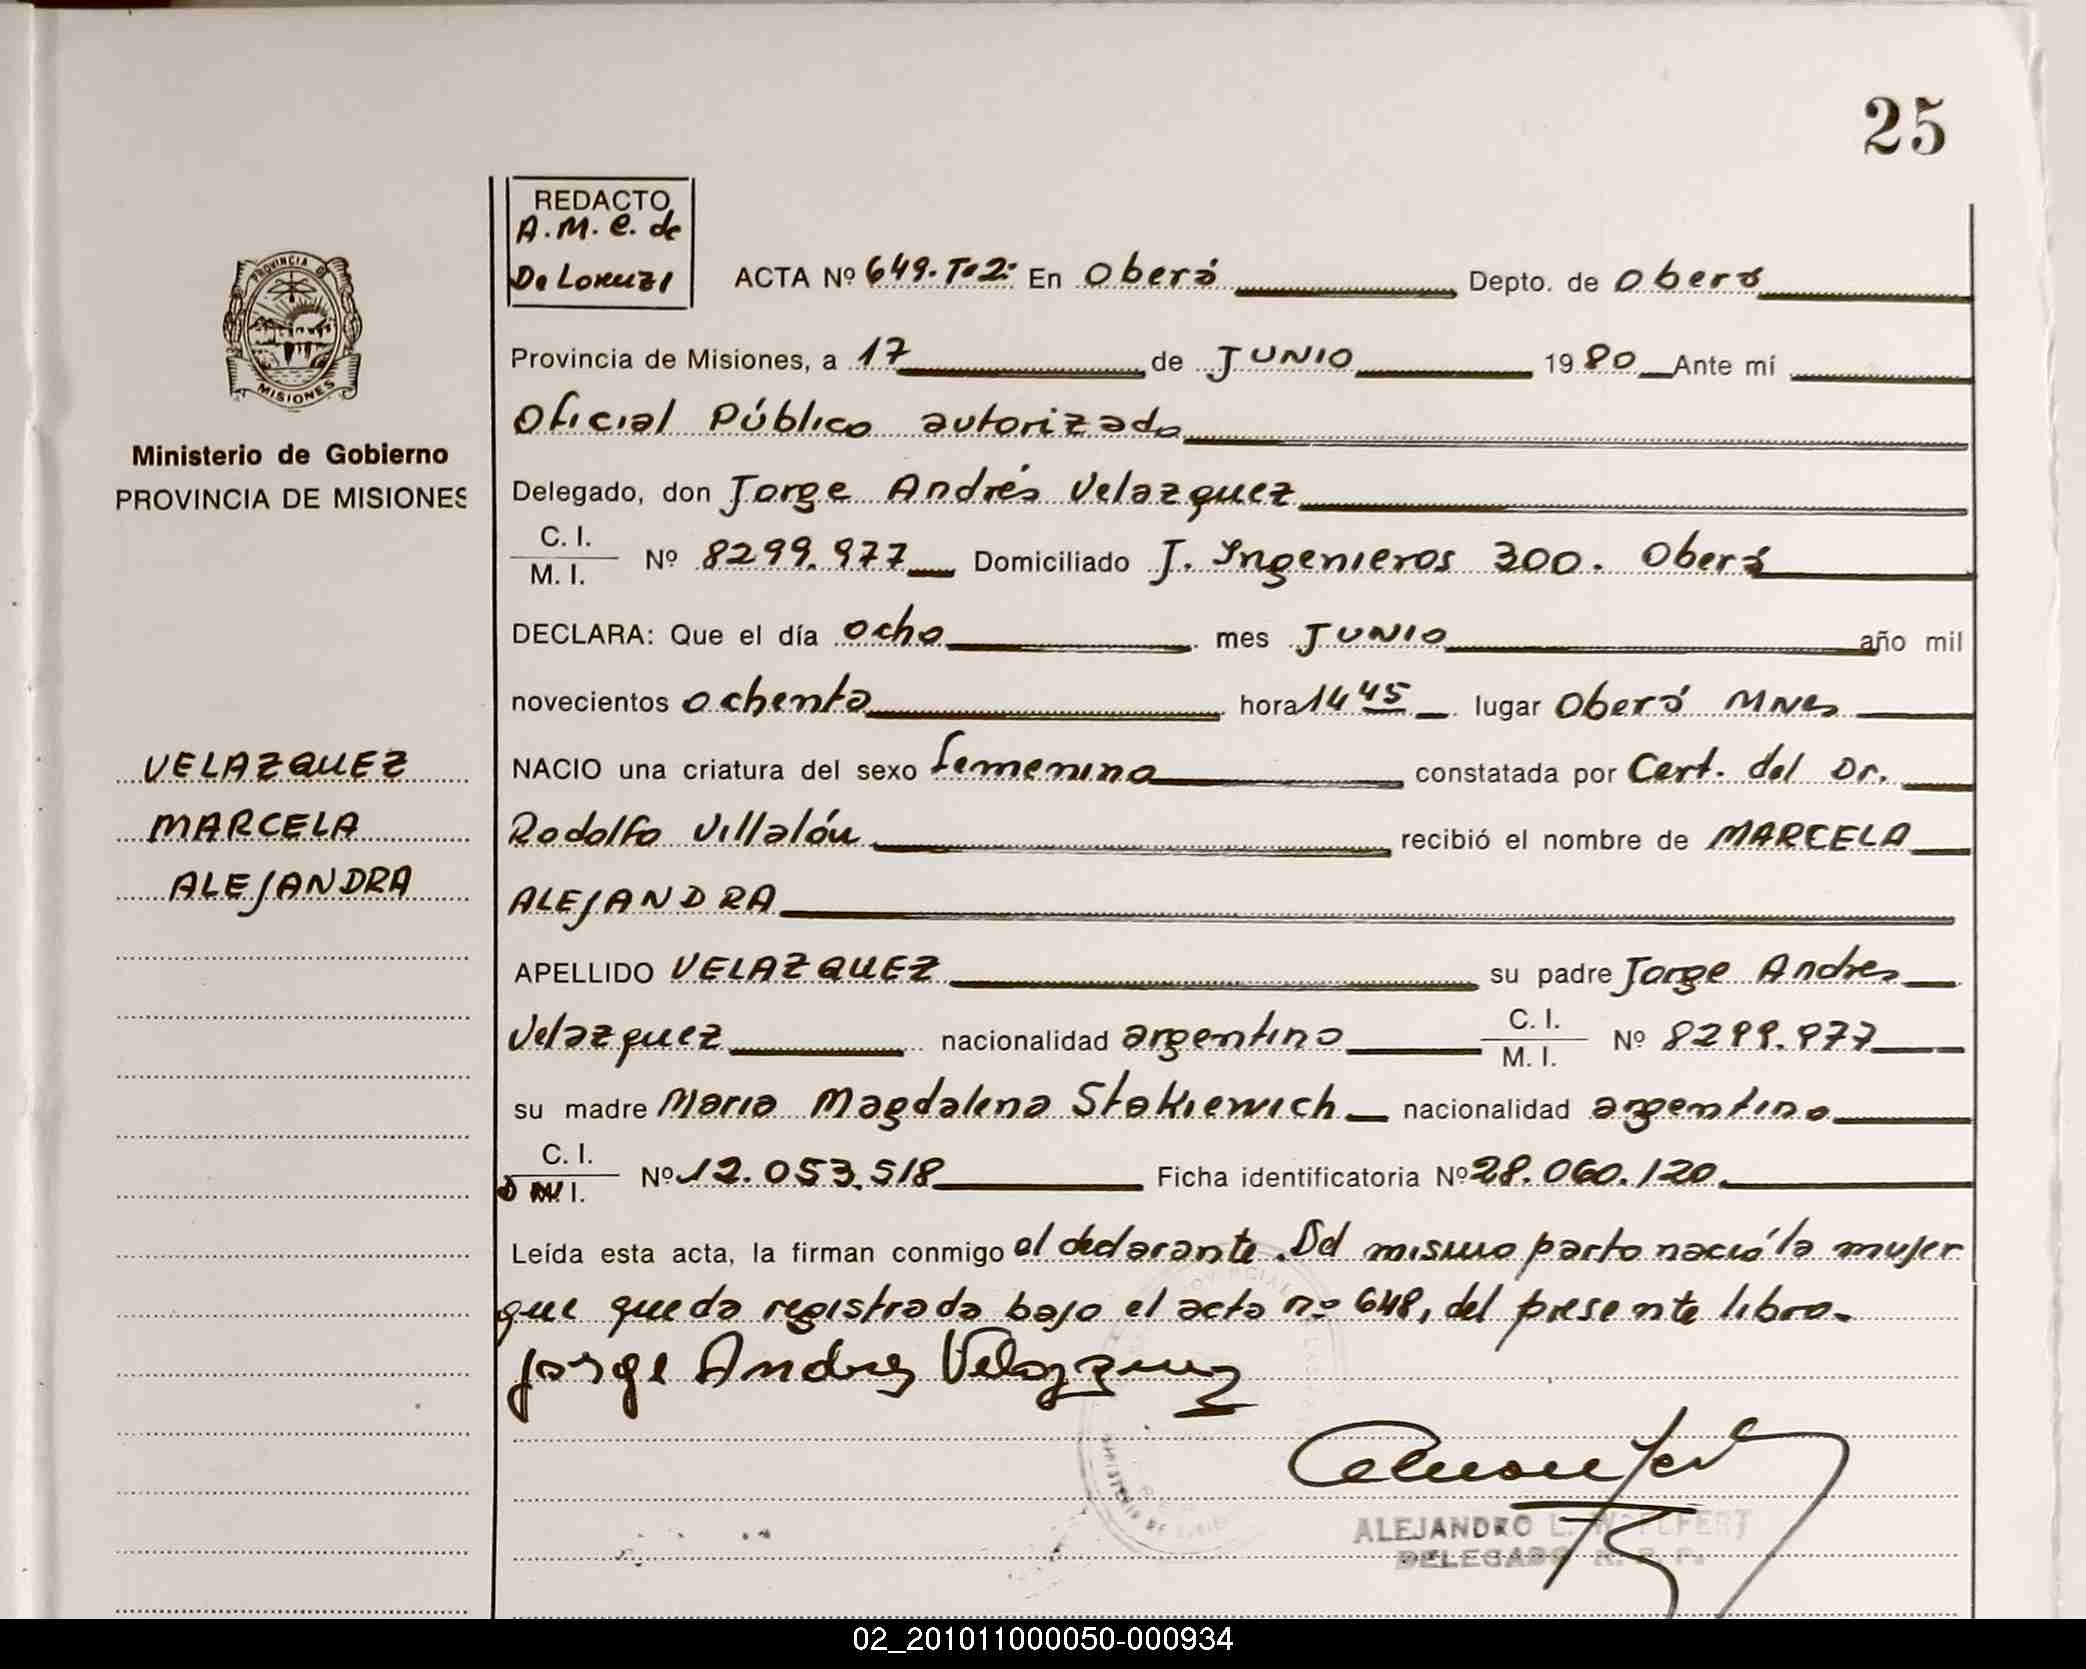 25
REDACTO
A.M.C. de
De Lorenzi
ACTA Nº 649. Tº2: En Oberá Depto. de Oberá
PROVINCIA DE
MISIONES
Provincia de Misiones, a 17 de JUNIO 1980 Ante mí
Oficial Público autorizado
Ministerio de Gobierno
PROVINCIA DE MISIONES
Delegado, don Jorge Andrés Velazquez
C. I.
M. I. Nº 8299.977 Domiciliado J. Ingenieros 300. Oberá
DECLARA: Que el día ocho mes JUNIO año mil
novecientos ochenta hora 14 45 lugar Oberá MNes
VELAZQUEZ
MARCELA
ALEJANDRA
NACIO una criatura del sexo femenino constatada por Cert. del Dr.
Rodolfo Villalón recibió el nombre de MARCELA
ALEJANDRA
APELLIDO VELAZQUEZ su padre Jorge Andres
Velazquez nacionalidad argentino C. I.
M. I. Nº 8299.977
su madre Maria Magdalena Stakiewich nacionalidad argentina
C. I.
D N I. Nº 12.053.518 Ficha identificatoria Nº 28.060.120.
Leída esta acta, la firman conmigo el declarante. Del mismo parto nació la mujer
que queda registrada bajo el acta nº 648, del presente libro.
Jorge Andres Velazquez
ALEJANDRO L.
DELEGADO R. P.
MINISTERIO DE
02_201011000050-000934